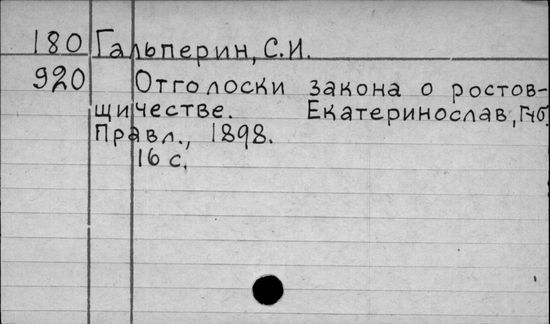 180 Гальперин, С.И.
920 Отголоски закона о ростов-
щичестве. Екатеринослав, Губ.
Правл., 1898.
16 с.